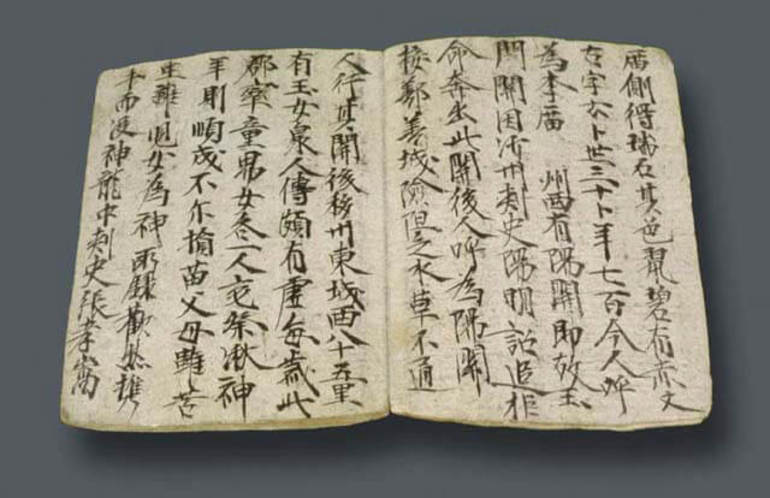 廟側得瑞石其色翠碧有赤文
古字云卜世三十卜年七百今人呼
為李廟 州西有陽關即故玉
門關因沙州刺史陽明詔追拒
命奔出此關後人呼為陽關
接鄯善城險阻乏水草不通
人行其關後移州東城西八十五里
有玉女泉人傳頗有靈每歲此
郡率童男女各一人充祭湫神
年則順成不尔損苗父母雖苦
生離兒女為神所錄歡然携
手而沒神龍中刺史張孝嵩